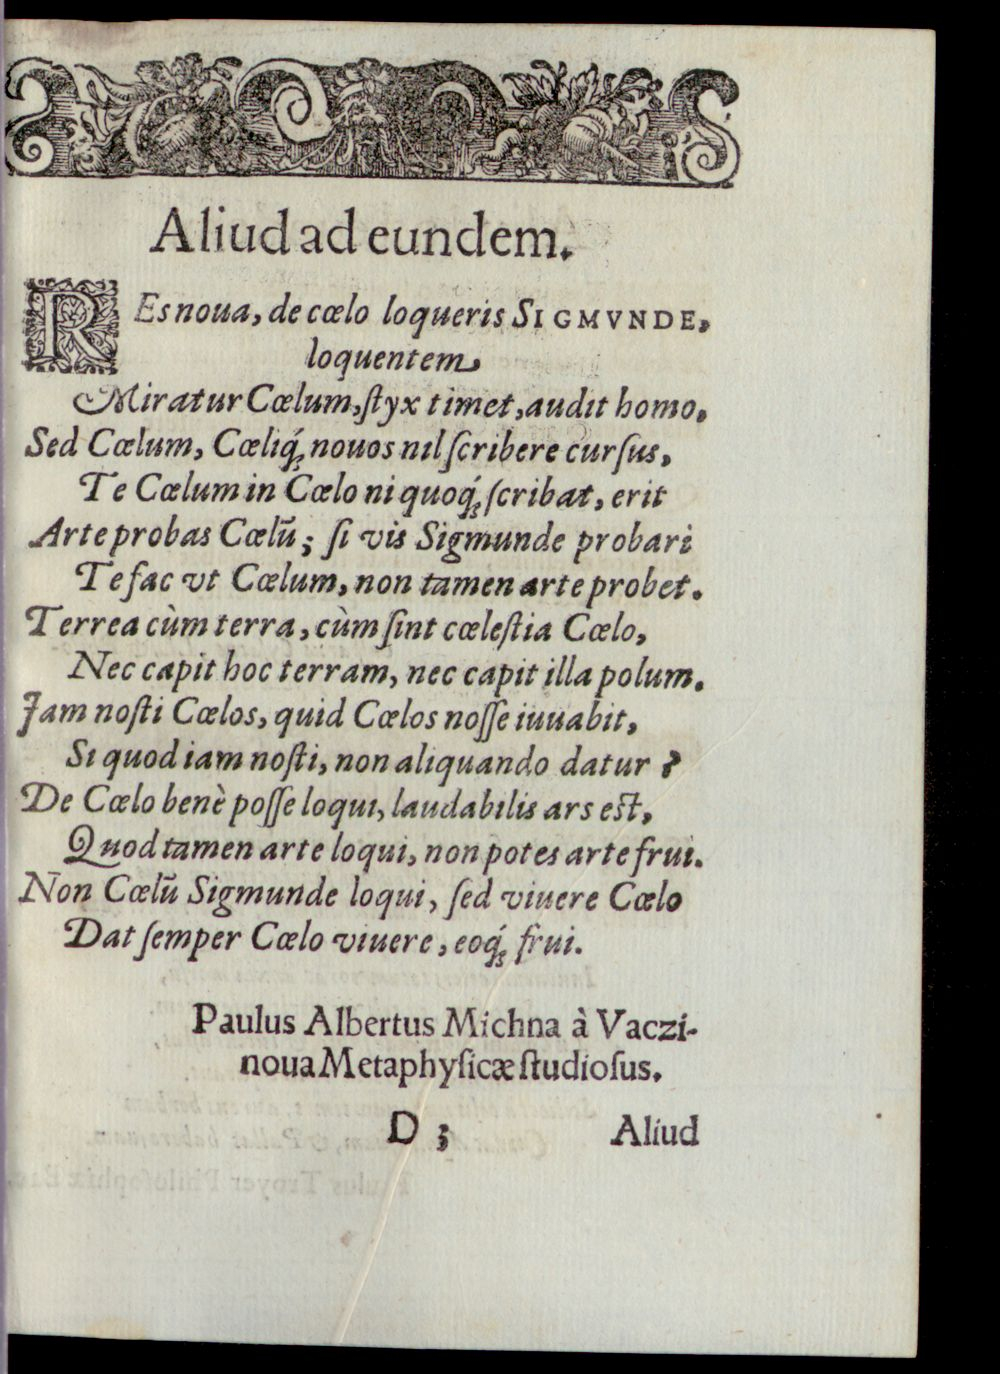 Aliud ad eundem.
REs noua, de cœlo loqueris SIGMVNDE,
loquentem
Miratur Cœlum, ſtyx timet, audit homo.
Sed Cœlum, Cœliq́; nouos nil ſcribere curſus,
Te Cœlum in Cœlo ni quoq́; ſcribat, erit
Arte probas Cœlũ; ſi vis Sigmunde probari
Te fac vt Cœlum, non tamen arte probet.
Terrea cùm terra, cùm ſint cœleſtia Cœlo,
Nec capit hoc terram, nec capit illa polum.
Jam noſti Cœlos, quid Cœlos noſſe iuuabit,
Si quod iam noſti, non aliquando datur?
De Cœlo benè poſſe loqui, laudabilis ars eſt,
Quod tamen arte loqui, non potes arte frui.
Non Cœlũ Sigmunde loqui, ſed viuere Cœlo
Dat ſemper Cœlo viuere, eoq́; frui.
Paulus Albertus Michna à Vaczi-
noua Metaphyſicæ ſtudioſus.
D ;
Aliud